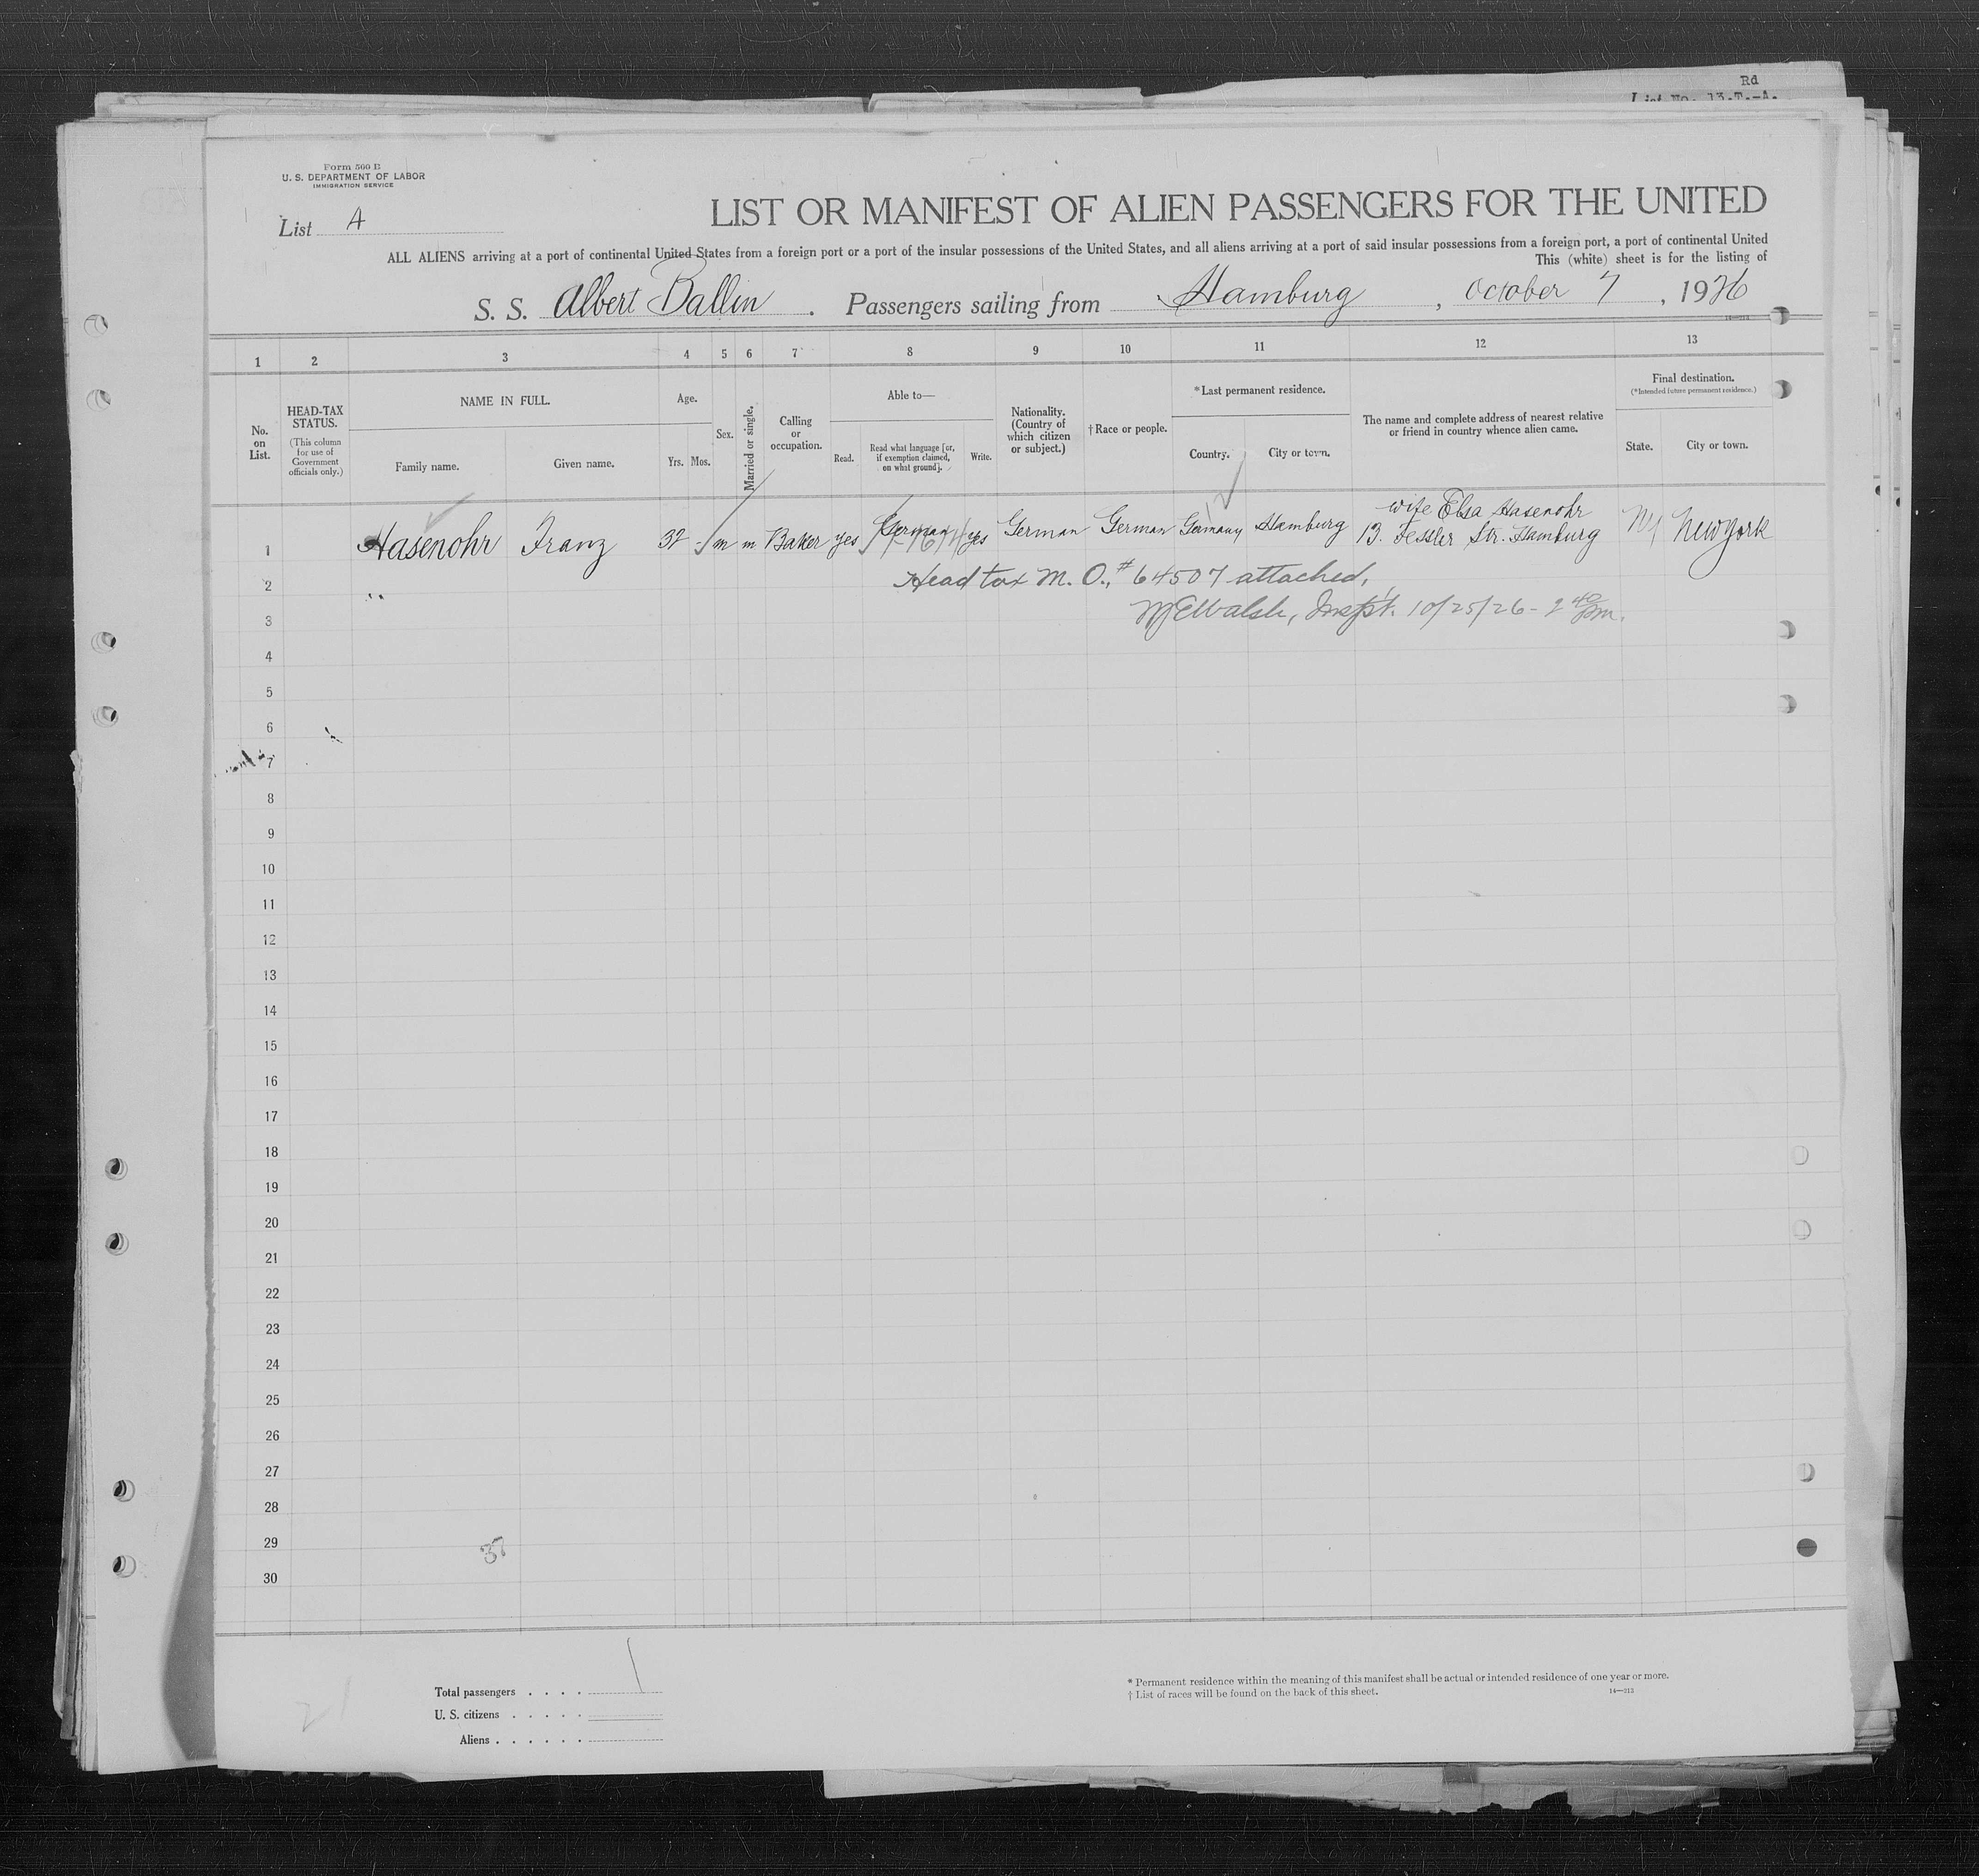 Rd
List No. 13-T.-A.
Form 500 B
U. S. DEPARTMENT OF LABOR
IMMIGRATION SERVICE
List A
LIST OR MANIFEST OF ALIEN PASSENGERS FOR THE UNITED
ALL ALIENS arriving at a port of continental United States from a foreign port or a port of the insular possessions of the United States, and all aliens arriving at a port of said insular possessions from a foreign port, a port of continental United
This (white) sheet is for the listing of
S. S. Albert Ballin . Passengers sailing from Hamburg , October 7 , 1926
14—213
1 2 3 4 5 6 7 8 9 10 11 12 13
No. on List.
HEAD-TAX STATUS.
(This column for use of Government officials only.)
NAME IN FULL.
Family name. Given name.
Age.
Yrs. Mos.
Sex.
Married or single.
Calling or occupation.
Able to—
Read. Read what language [or, if exemption claimed, on what ground]. Write.
Nationality. (Country of which citizen or subject.)
†Race or people.
*Last permanent residence.
Country. City or town.
The name and complete address of nearest relative or friend in country whence alien came.
Final destination.
(*Intended future permanent residence.)
State. City or town.
1 Hasenohr Franz 32 - m m Baker yes German yes German German Germany Hamburg wife Elsa Hasenohr
13. Fessler Str. Hamburg NY New York
2 Head tax M. O., # 64507 attached,
3 Walsh, Inspt. 10/25/26 - 2 40 pm.
4
5
6
7
8
9
10
11
12
13
14
15
16
17
18
19
20
21
22
23
24
25
26
27
28
29
37
30
Total passengers . . . . 1
U. S. citizens . . . . .
Aliens . . . . . .
21
* Permanent residence within the meaning of this manifest shall be actual or intended residence of one year or more.
† List of races will be found on the back of this sheet.
14—213